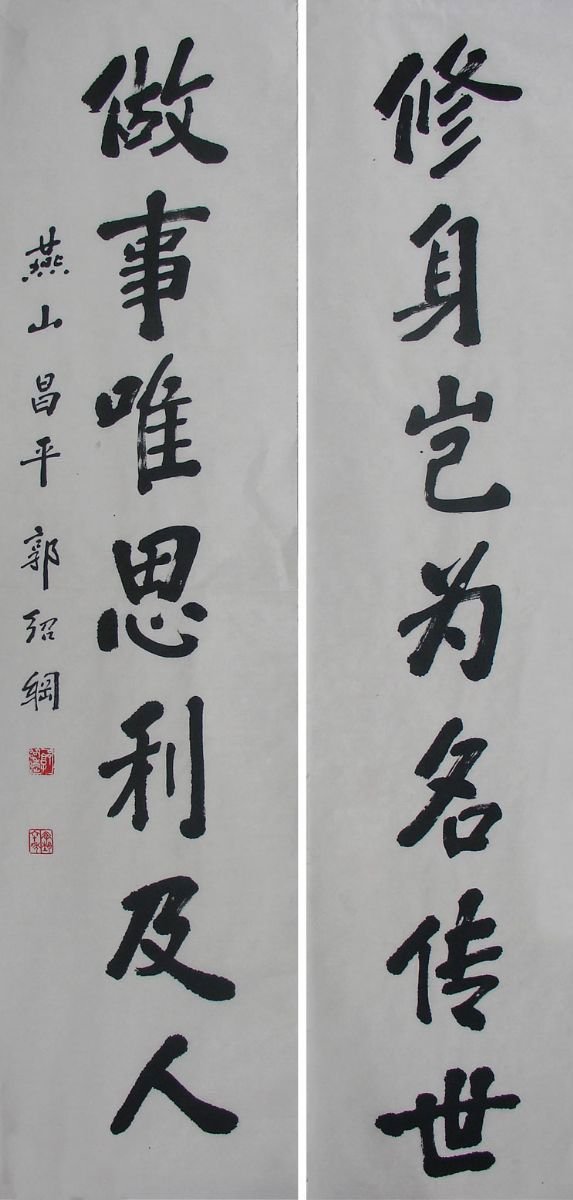 修身岂为名传世
做事唯思利及人
燕山昌平郭绍纲